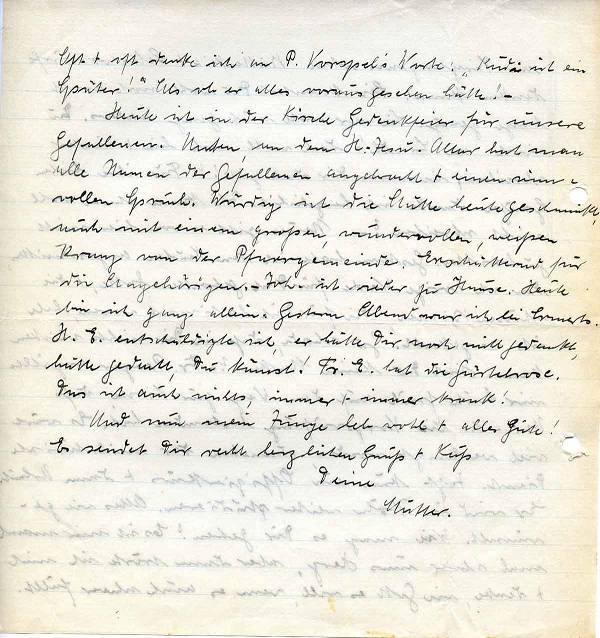 Oft + oft denke ich an P. Vorspel's Worte: „ ist ein
Später!" Als ob er alles vorausgesehen hätte! –
Heute ist in der Kirche Gedenkfeier für unsere
Gefallenen. Unten, an dem H. Jesu-Altar hat man
alle Namen der Gefallenen angebracht + einen sinn-
vollen Spruch. Würdig ist die Stätte heute geschmückt,
auch mit einem großen, wundervollen, weißen
Kranz von der Pfarrgemeinde. Erschütternd für
die Angehörigen. – Joh. ist wieder zu Hause. Heute
bin ich ganz allein. Gestern Abend war ich bei
H. E. entschuldigte sich, er hätte Dir noch nicht gedankt,
hätte gedacht, Du kämst! Fr. E. hat die Gürtelrose.
Das ist auch nichts, immer + immer krank.
Und nun mein Junge leb wohl + alles Gute!
Es sendet Dir recht herzlichen Gruß + Kuß
Deine
Mutter.